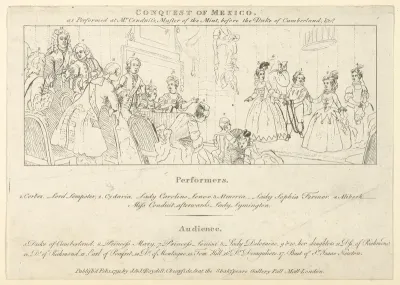 CONQUEST OF MEXICO.
as Performed at Mr. Conduit's, Master of the Mint, before the Duke of Cumberland, &c.
Performers.
1 Cortez, Lord Lempster, 2 Cydaria, Lady Caroline Lenox 3 Almeria, Lady Sophia Fermor 4 Alibech
Miss Conduit, afterwards Lady Lymington.
Audience.
1 Duke of Cumberland 2 Princess Mary, 7 Princess Louisa 8 Lady Deloraine, 9 &10, her daughters 11 Dss. of Richmond
12 D. of Richmond, 13 Earl of Pomfret, 14 D. of Montague, 15 Tom Hill, 16 Dr. Desaguliers, 17 Bust of Sr. Isaac Newton.
Publish'd by J. & J. Boydell, Cheapside, & at the Shakspeare Gallery Pall Mall London.